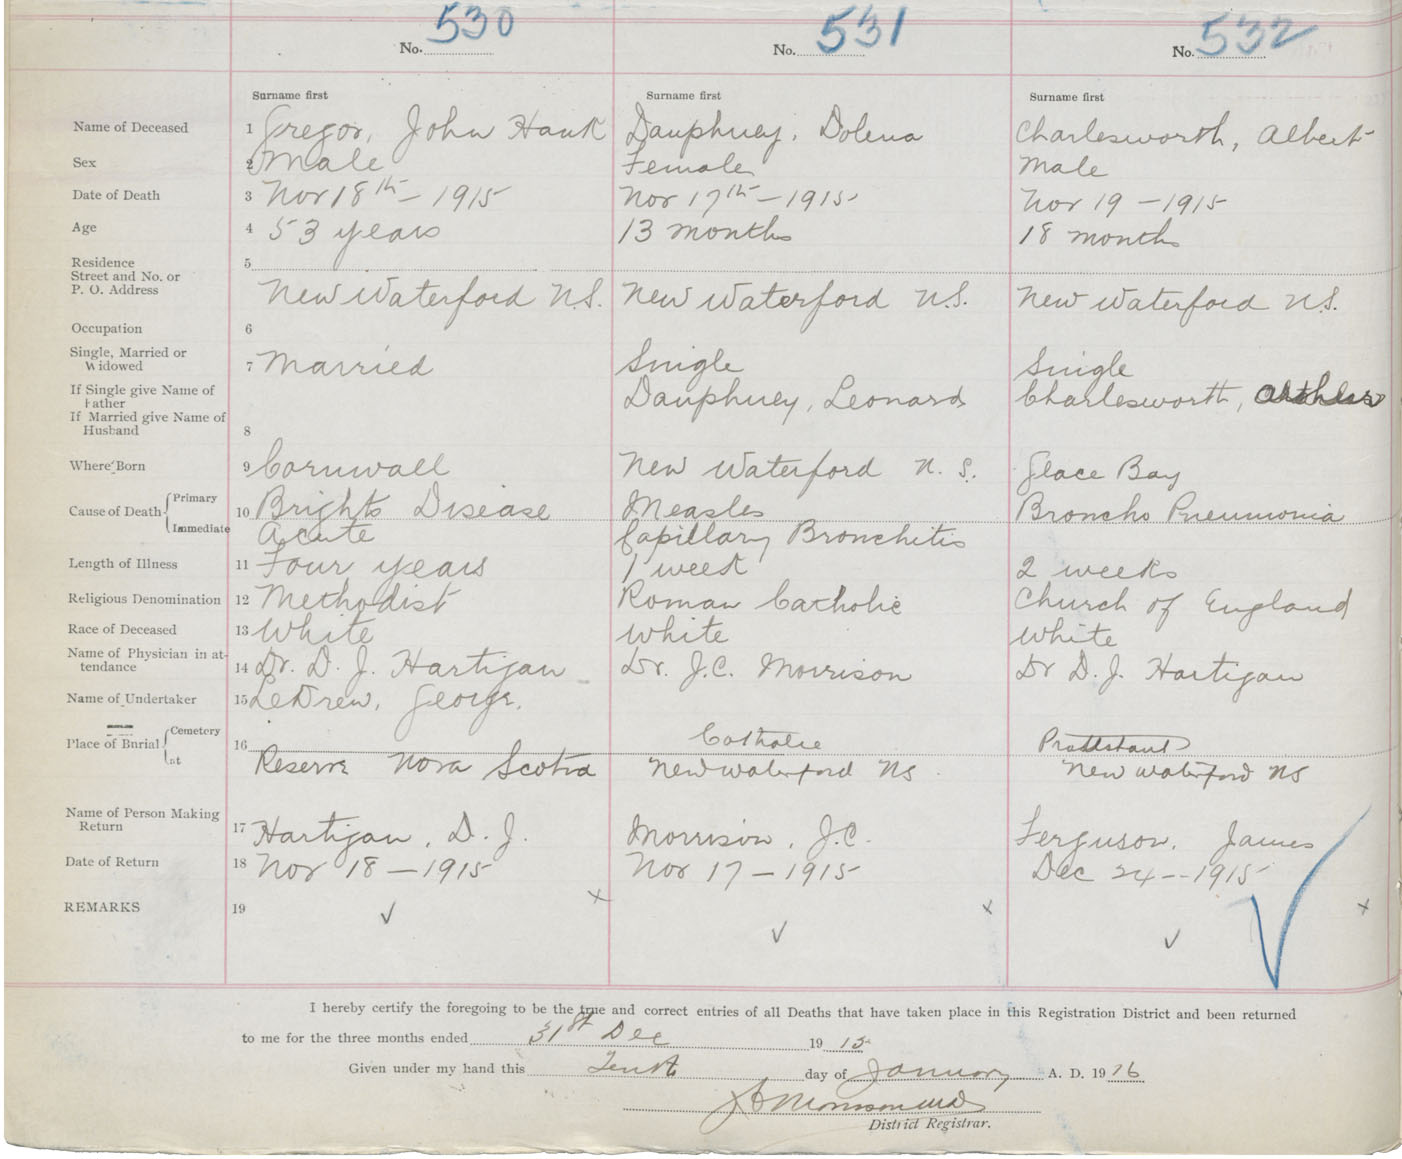 No. 530 No. 531 No. 532
Surname first Surname first Surname first
Name of Deceased 1 Gregor, John Hank Dauphney, Dolena Charlesworth, Albert
Sex 2 Male Female Male
Date of Death 3 Nov 18th - 1915 Nov 17th - 1915 Nov 19 - 1915
Age 4 53 years 13 months 18 months
Residence 5
Street and No. or
P. O. Address New Waterford N.S. New Waterford N.S. New Waterford N.S.
Occupation 6
Single, Married or
Widowed 7 Married Single Single
If Single give Name of
Father Dauphney, Leonard Charlesworth, Arthur
If Married give Name of
Husband 8
Where Born 9 Cornwall New Waterford N. S. Glace Bay
Cause of Death Primary 10 Brights Disease Measles Broncho Pneumonia
Immediate Acute Capillary Bronchitis
Length of Illness 11 Four years 1 week 2 weeks
Religious Denomination 12 Methodist Roman Catholic Church of England
Race of Deceased 13 White White White
Name of Physician in at-
tendance 14 Dr. D. J. Hartigan Dr. J.C. Morrison Dr D. J. Hartigan
Name of Undertaker 15 LeDrew, George.
Place of Burial Cemetery 16 Catholic Protestant
Reserve Nova Scotia New Waterford NS New Waterford NS
Name of Person Making
Return 17 Hartigan, D. J. Morrison, J.C. Ferguson, James
Date of Return 18 Nov 18 - 1915 Nov 17 - 1915 Dec 24 - 1915
REMARKS 19
I hereby certify the foregoing to be the true and correct entries of all Deaths that have taken place in this Registration District and been returned
to me for the three months ended 31st Dec 19 15
Given under my hand this Tenth day of January A. D. 19 16
Morrison MD
District Registrar.